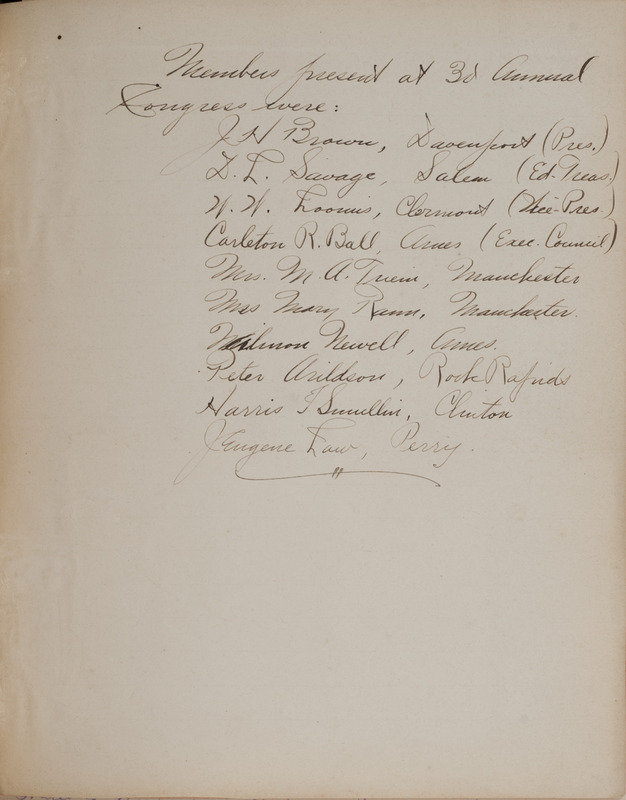 Members present at 3d Annual
Congress were:
J H Brown, Davenport (Pres.)
D. L. Savage, Salem (Ed-Treas.)
W. W. Loomis, Clermont (Vice-Pres.)
Carleton R. Ball, Ames (Exec. Council)
Mrs. M. A. Triem, Manchester
Miss Mary Rann, Manchester.
Wilmon Newell, Ames.
Peter Arildson, Rock Rapids
Harris F Smullin, Clinton
J Eugene Law, Perry.